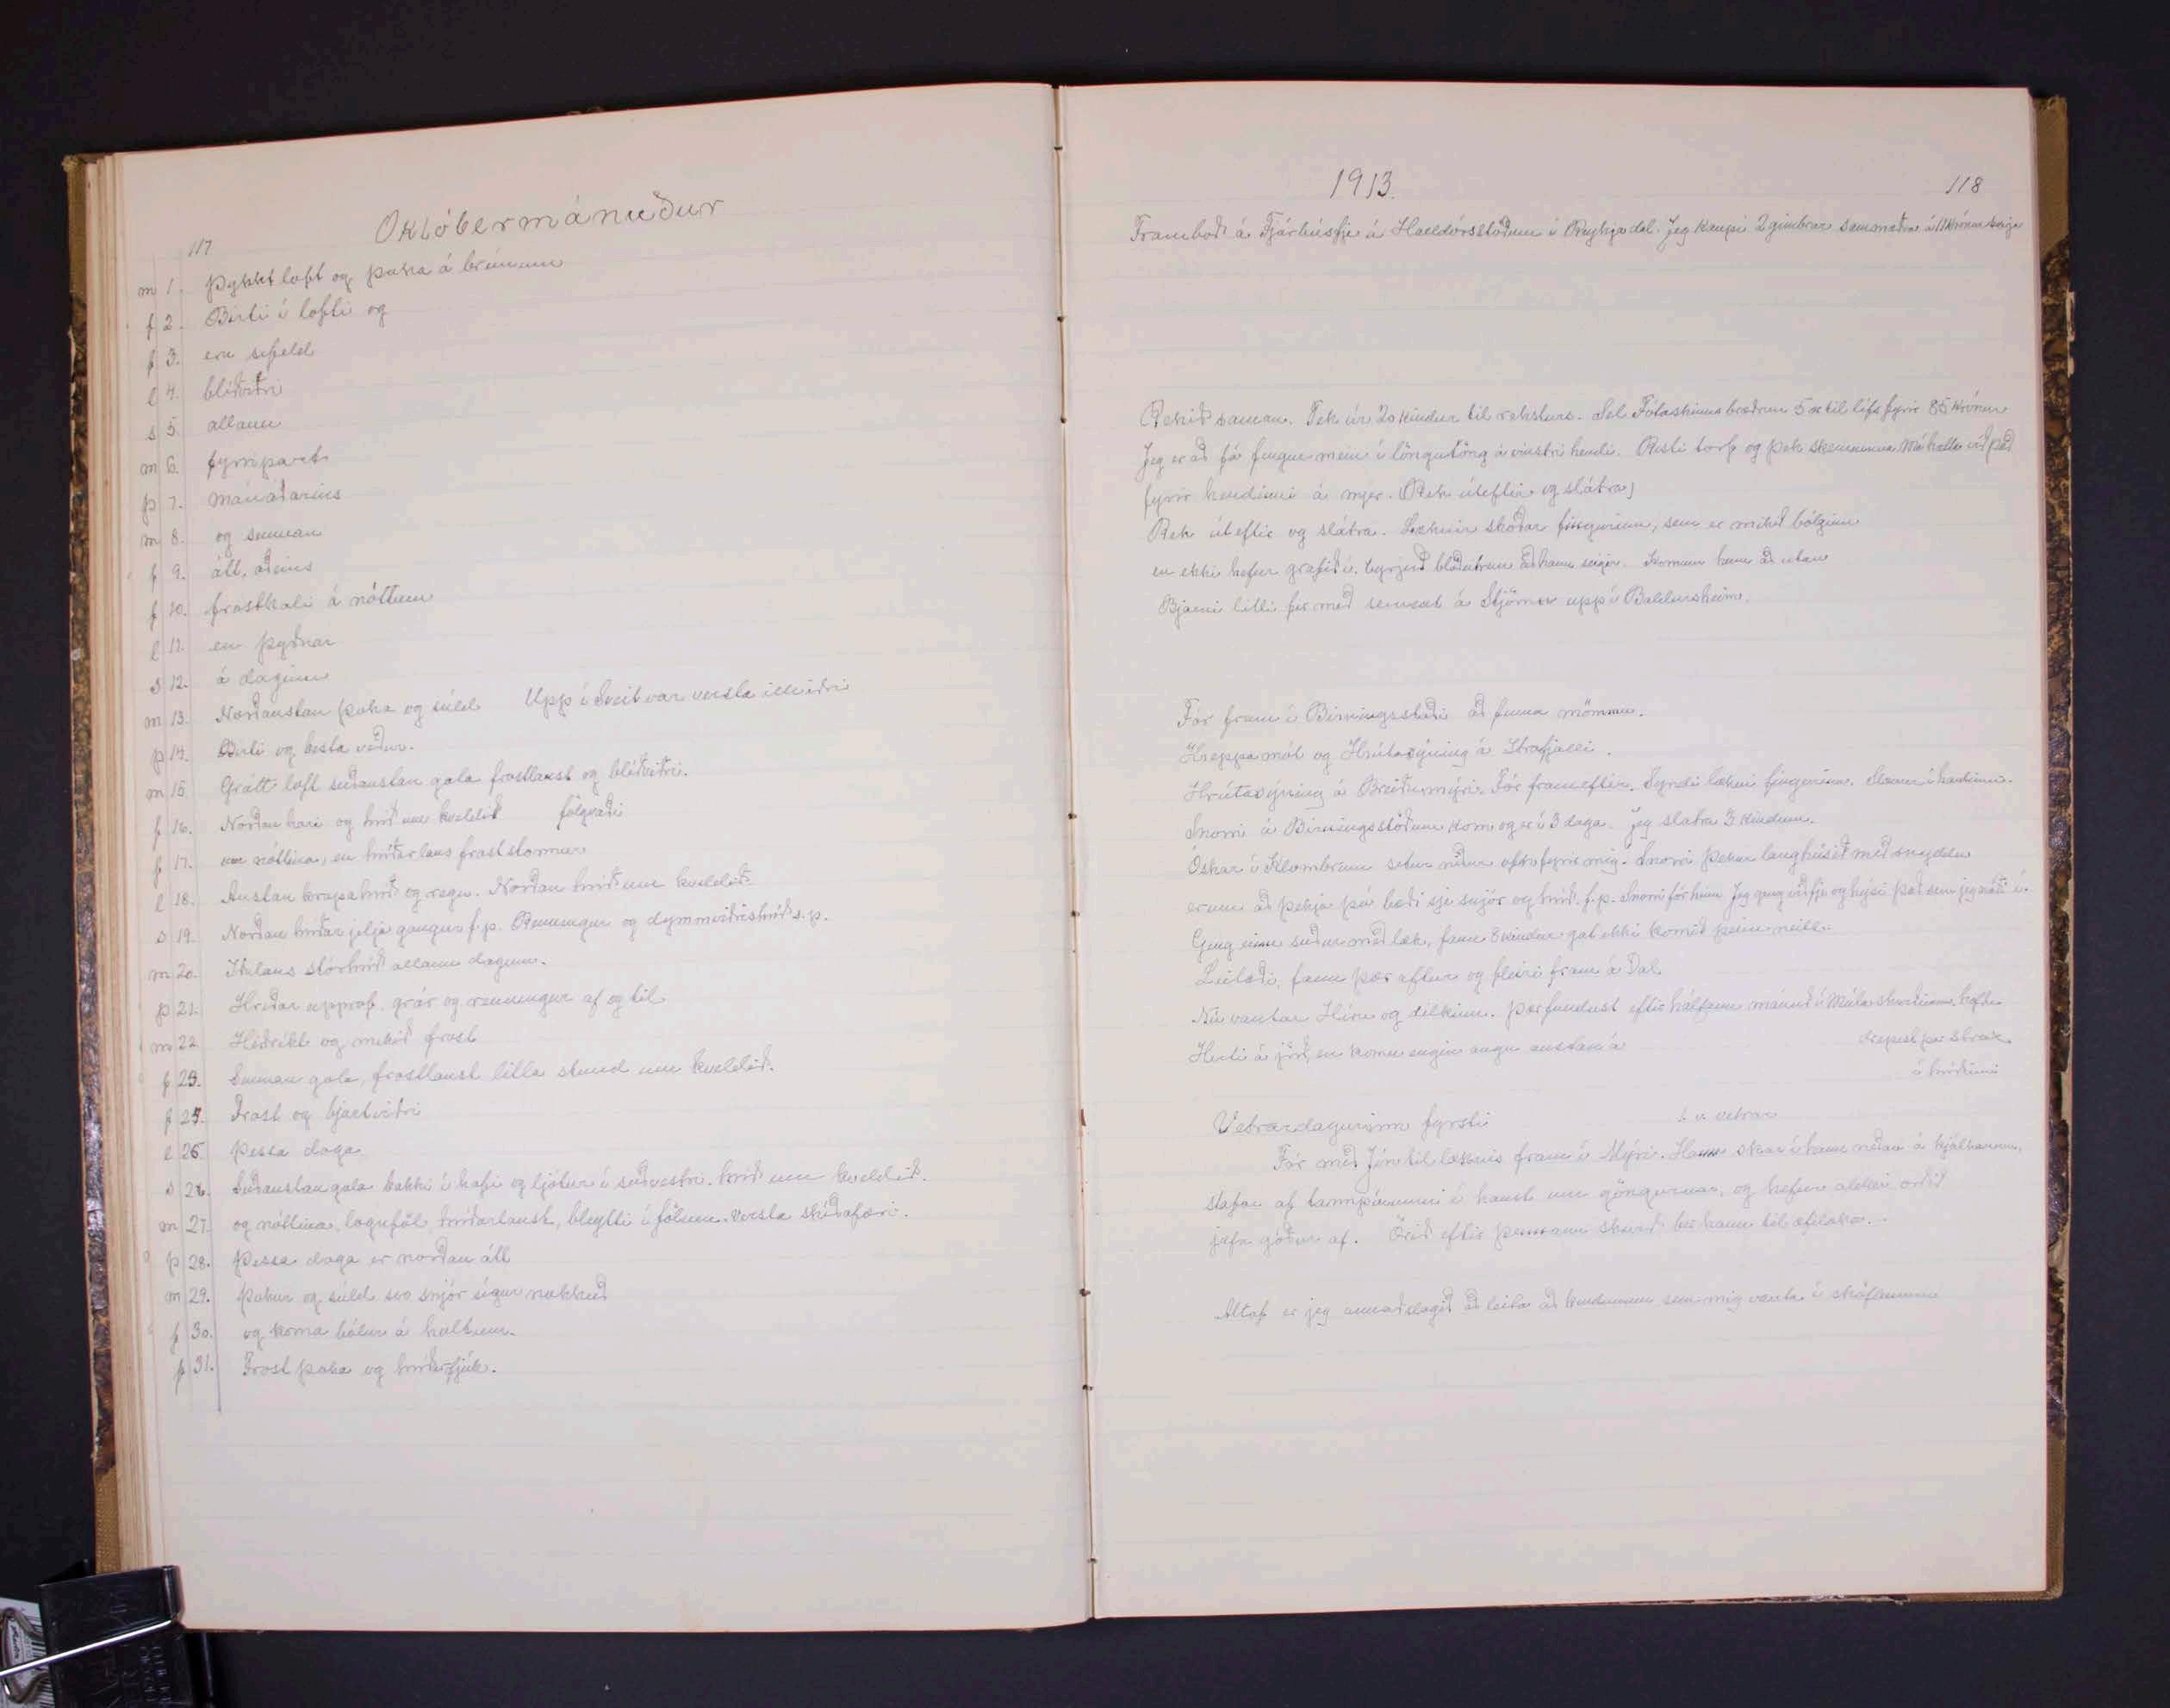 Októbermánuður
117
m 1. Þykkt loft og þoka á brúnum
f 2. Birti í lofti og
f 3. eru sifeld
l 4. blíðviðri
s 5. allann
m 6. fyrripart
þ 7. mánaðarins
m 8. og sunnan
f 9. átt, aðeins
f 10. frostkali á nóttum
l 11. en þyðnar
s 12. á daginn
m 13. Norðaustan þoka og súld Upp í Sveit var versta illviðri
þ 14. Birti og besta veður.
m 15 Grátt loft suðaustan gola frostlaust og blíðviðri.
f 16. Norðan kari og hríð um kveldið fölgvaði
f 17. um nóttina, en hríðarlaus froststormur
l 18. Austan krapahríð og regn. Norðan hríð um kveldið
s 19. Norðan hríðar jelja gangur f.p. Renningur og dymmviðrishríð s.p.
m 20. Itulaus stórhríð allann daginn.
þ 21. Hríðar upprof grár og renningur af og til
m 22 Heiðríkt og mikið frost
f 23. Sunnan gola, frostlaust litla stund um kveldið.
f 24. Frost og bjartviðri
l 25 Þessa daga
s 26. Suðaustan gola bakki í hafi og ljótur í suðvestri. hríð um kveldið.
m 27. og nóttina, lognföl hríðarlaust, bleytti í fölinu. Versta skíðafæri.
þ 28. Þessa daga er norðan átt
m 29. þokur og súld svo snjór sígur nokkuð
f 30. og koma hólar á holtum.
f 31. Frost þoka og hríðarfjúk.
1913.
118
Framboð á Fjárhúsfje á Halldórsstöðum í Reykjadal. Jeg kaupi 2 gimbrar
Rekið saman. Tek úr 20 kindur til reksturs. Sel Fótaskinns bræðrum 5 ær til lífs fyrir 85 krónur
Jeg er að fá fingur mein í löngutöng á vinstri hendi. Risti torf og þek skemmuna. Má hætta við það
fyrir hendinni á mjer. (Rek úteftir og slátra)
Rek úteftir og slátra. Læknir skoðar fingurinn, sem er mikið bólginn
en ekki hefur grafið í, byrjuð blóðeitrun að hann seigir. Komum heim að utan
Bjarni litli fer með semsat á Stjörnu upp í Baldursheim.
Fór fram í Birningsstaði að finna mömmu.
Hreppamót og Hrútasýning á Ystafjalli.
Hrútasýning á Breiðumýri. Fór frameftir. Syndi lækni fingurinn.
Snorri á Birningsstöðum kom og er í 3 daga. Jeg slátra 3 kindum.
Óskar í Klömbrum setur niður ofn fyrir mig. Snorri þekur langhúsið með snyddu
erum að þekja þó bæði sje snjór og hríð. f.p. Snorri fór heim. Jeg geng við fje og hýsi það sem jeg náði í.
Geng einn suður með læk, fann 8 kindur gat ekki komið þeim neitt.
Leitaði, fann þær aftur og fleiri fram á Dal
Nú vantar Híru og dilkinn. Þær fundust eftir hálfann mánuð í Múlaskurðinum, hafa
drepist þar strax
í hríðinni
Herti á jörð, en komu engin augu austan á
Vetrardagurinn fyrsti 1 v vetrar
Fór með Jón til læknis fram í Mýri. Hann skar í hann neðan á kjálkanum,
stafar af tannpínunni í haust um göngurnar, og hefur aldrei orðið
jafn góður af. Örið eftir þennann skurð ber hann til æfiloka.
Altaf er jeg annaðslagið að leita að kindunum sem mig vantar í sköflunum